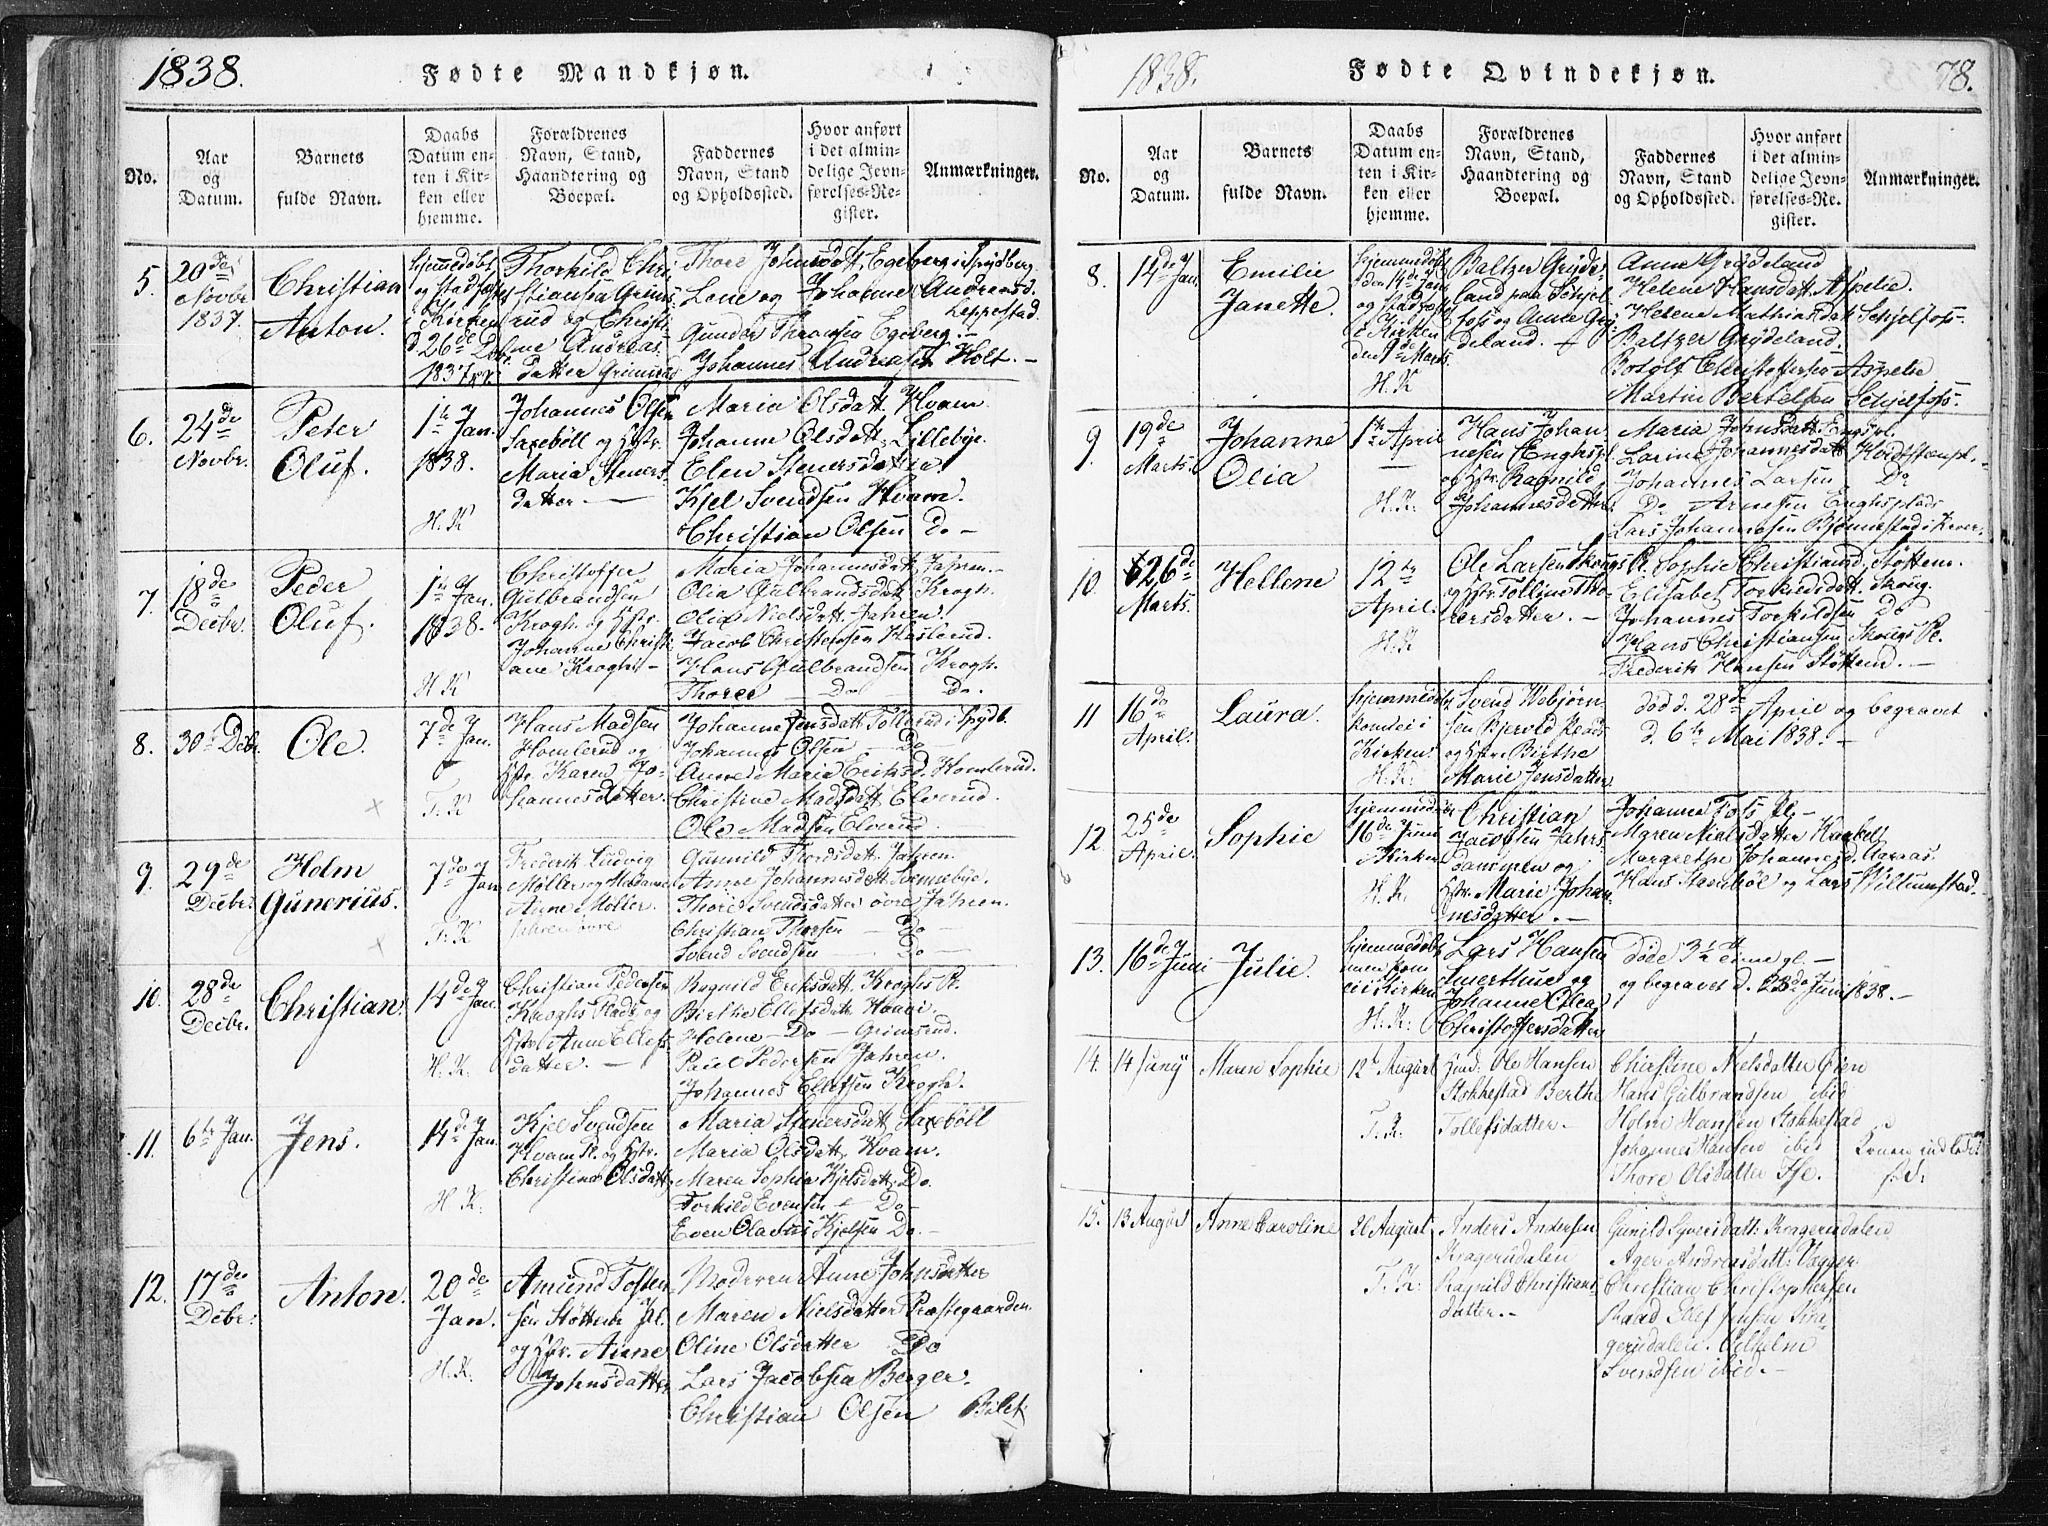 1838.
Fødte Mandkjøn.
No.
Aar og Datum.
Barnets fulde Navn.
Daabs Datum enten i Kirken eller hjemme.
Forældrenes Navn, Stand, Haandtering og Boepæl.
Faddernes Navn, Stand og Opholdssted.
Hvor anført i det almindelige Jevnførelses-Register.
Anmærkninger.
5.
20de
Novbr.
1837.
Christian
Anton.
hjemmedøbt
og stadfæstet
i Kirken
d. 26de Dbr
1837
Thorkild Chri-
stiansen Grims-
rud og Christi-
ne Andreas-
datter Grimsrud
Thore Johnsdatt. Egeberg i Spydberg.
Lene og Johanne Andreasd. Leppestad.
Gunder Thronsen Egeberg.
Johannes Andreasen Holt. –
6.
24de
Novbr.
Peter
Oluf.
1ste Jan.
1838.
H. K
Johannes Olsen
Saxebøll og Hstr.
Maria Steners-
datter. —
Maria Olsdatt. Hvam.
Johanne Olsdatt. Lillebye.
Elen Stenersdatter
Kjel Svendsen Hvam.
Christian Olsen Do –
7.
18de
Decbr.
Peder
Oluf.
1ste Jan.
1838.
H. K
Christoffer
Gulbrandsen
Krogh. og Hstr.
Johanne Christi-
ane Kroghs –
Maria Johannesdatt. Jahren. –
Olia Gulbrandsdatt. Krogh.
Olia Nielsdatt. Jahren.
Jacob Christensen Haslerud.
Hans Gulbrandsen Krogh.
Thorer — Do — Do.
8.
30te Decbr.
Ole.
7de Jan.
F. K
Hans Madsen
Homlerud og
Hstr. Karen Jo-
hannesdatter.
Johanne Jensdatt. Tollerud i Spydb.
Johannes Olsen — Do
Anne Maria Eriksd. Homlerud.
Christine Madsdatt. Elverud.
Ole Madsen Elverud.
9.
29de
Decbr.
Holm
Gunerius.
7de Jan
F. K
Frederik Ludvig
Møller og Madame
Anne Møller.
Jahren øvre
Gunnild Thordsdatt. Jahren.
Anne Johannesdatt. Svennebye.
Thore Svendsdatter øvre Jahren.
Christian Thorsen — Do –
Svend Svendsen — Do –
10.
28de
Decbr.
Christian.
14de Jan.
H. K.
Christian Pedersen
Kroghs Plads og
Hstr. Anne Ellefs-
datter. —
Ragnild Eriksdatt. Kroghs Pl.
Birthe Ellefsdatt. Hvam.
Helene — Do — Grimsrud.
Paul Pedersen Jahren.
Johannes Ellefsen Krogh.
11.
6te Jan.
Jens.
14de Jan.
H. K.
Kjel Svendsen
Hvam Pl. og Hstr.
Christine Olsdatt.
Maria Stenersdatt. Saxebøll
Maria Olsdatt. Hvam.
Maren Sophia Kjelsdatt. Do.
Torkild Evensen — Do –
Even Olavus Kjelsen Do. –
12.
17de
Decbr.
Anton.
20de
Jan.
H. K.
Amund Tosten-
sen Støttem Pl.
og Hstr. Anne
Johnsdatter
Moderen Anne Johnsdatter
Maren Nielsdatter Præstegaarden.
Oline Olsdatter Do
Lars Jacobsen Berger.
Christian Olsen Bilet
1838.
Fødte Qvindekjøn.
78.
No.
Aar og Datum.
Barnets fulde Navn.
Daabs Datum enten i Kirken eller hjemme.
Forældrenes Navn, Stand, Haandtering og Boepæl.
Faddernes Navn, Stand og Opholdssted.
Hvor anført i det almindelige Jevnførelses-Register.
Anmærkninger.
8.
14de Jan.
Emilie
Janette.
hjemmedøbt
den 14de Jan
og stadfæstet
i Kirken
den 9de Marts
H. K
Baltzer Gryde-
land paa Schjel-
foss og Anne Gry-
deland.
Anne Grydeland
Helene Hansdatt. Aspelie.
Helene Mathiasdatt. Schjelfoss.
Baltzer Grydeland.
Botolf Christoffersen Aspelie
Martin Bertelsen Schjelfoss.
9.
19de
Marts.
Johanne
Olia
1ste April
H. K.
Hans Johan-
nesen Enghspl.
og Hstr. Ragnild
Johannesdatter
Maria Johnsdatt. Engspl.
Larine Johannesdatt. Hvidstenpl.
Johannes Larsen Do
Do Arnesen Enghsplads
Lars Johannesen Bjønnestad i Kver
10
26de
Marts.
Hellene
12te
April.
H. K
Ole Larsen Skougs Pl.
og Hstr. Tolline Tho-
rersdatter. –
Sophie Christiansd. Støttem.
Elisabet Torkildsdatt. Skoug.
Johannes Torkildsen Do
Hans Christiansen Skougs Pl.
Frederik Hansen Støttend. –
11
16de
April.
Laura.
hjemmedøbt
kom ei i
Kirken.
H. K.
Svend Webjørn-
sen Bjerold Plads
og Hstr. Birthe
Marie Jensdatter
død d. 28de April og begravet
d. 6te Mai 1838. –
12
25de
April.
Sophie
hjemmedøbt
16de Juni
i Kirken
H. K.
Christian
Jacobsen Jahrs-
dansplen og
Hstr. Marie Johan-
nesdatter. –
Johanne Foss Pl. –
Maren Nielsdatter Kaabel
Margrethe Johannesd. Aasras.
Hans Stenebøl og Lars Villumstad.
13.
16de Juni
Julie.
hjemmedøbt
men kom
ei i Kirken
H. K.
Lars Hansen
Smerthue og
Johanne Olea
Christoffersdatter
Døde 3½ time gl. –
og begravet d. 23de Juni 1838. –
14.
14 Juny
Maren Sophie
12te August
F. K.
Hmd. Ole Hansen
Stokkestad Berthe
Tollefsdatter –
Christine Nielsdatter Øien
Hans Gulbrandsen ibid
Holm Hansen Stokkestad
Johannes Hansen ibid
Thore Olsdatter Hse.
Konen indledet
s. d.
15.
13 August
Anne Caroline
26 August
F. K.
Anders Andersen
Kragerudalen
Ragnild Christians-
datter. –
Gunild Syversdatt. Kragerudalen
Ager Andreasdatt. Vegger
Christian Christophersen
Raad Ellef Jensen Kra-
gerudalen. Vilhelm
Svendsen ibid. –